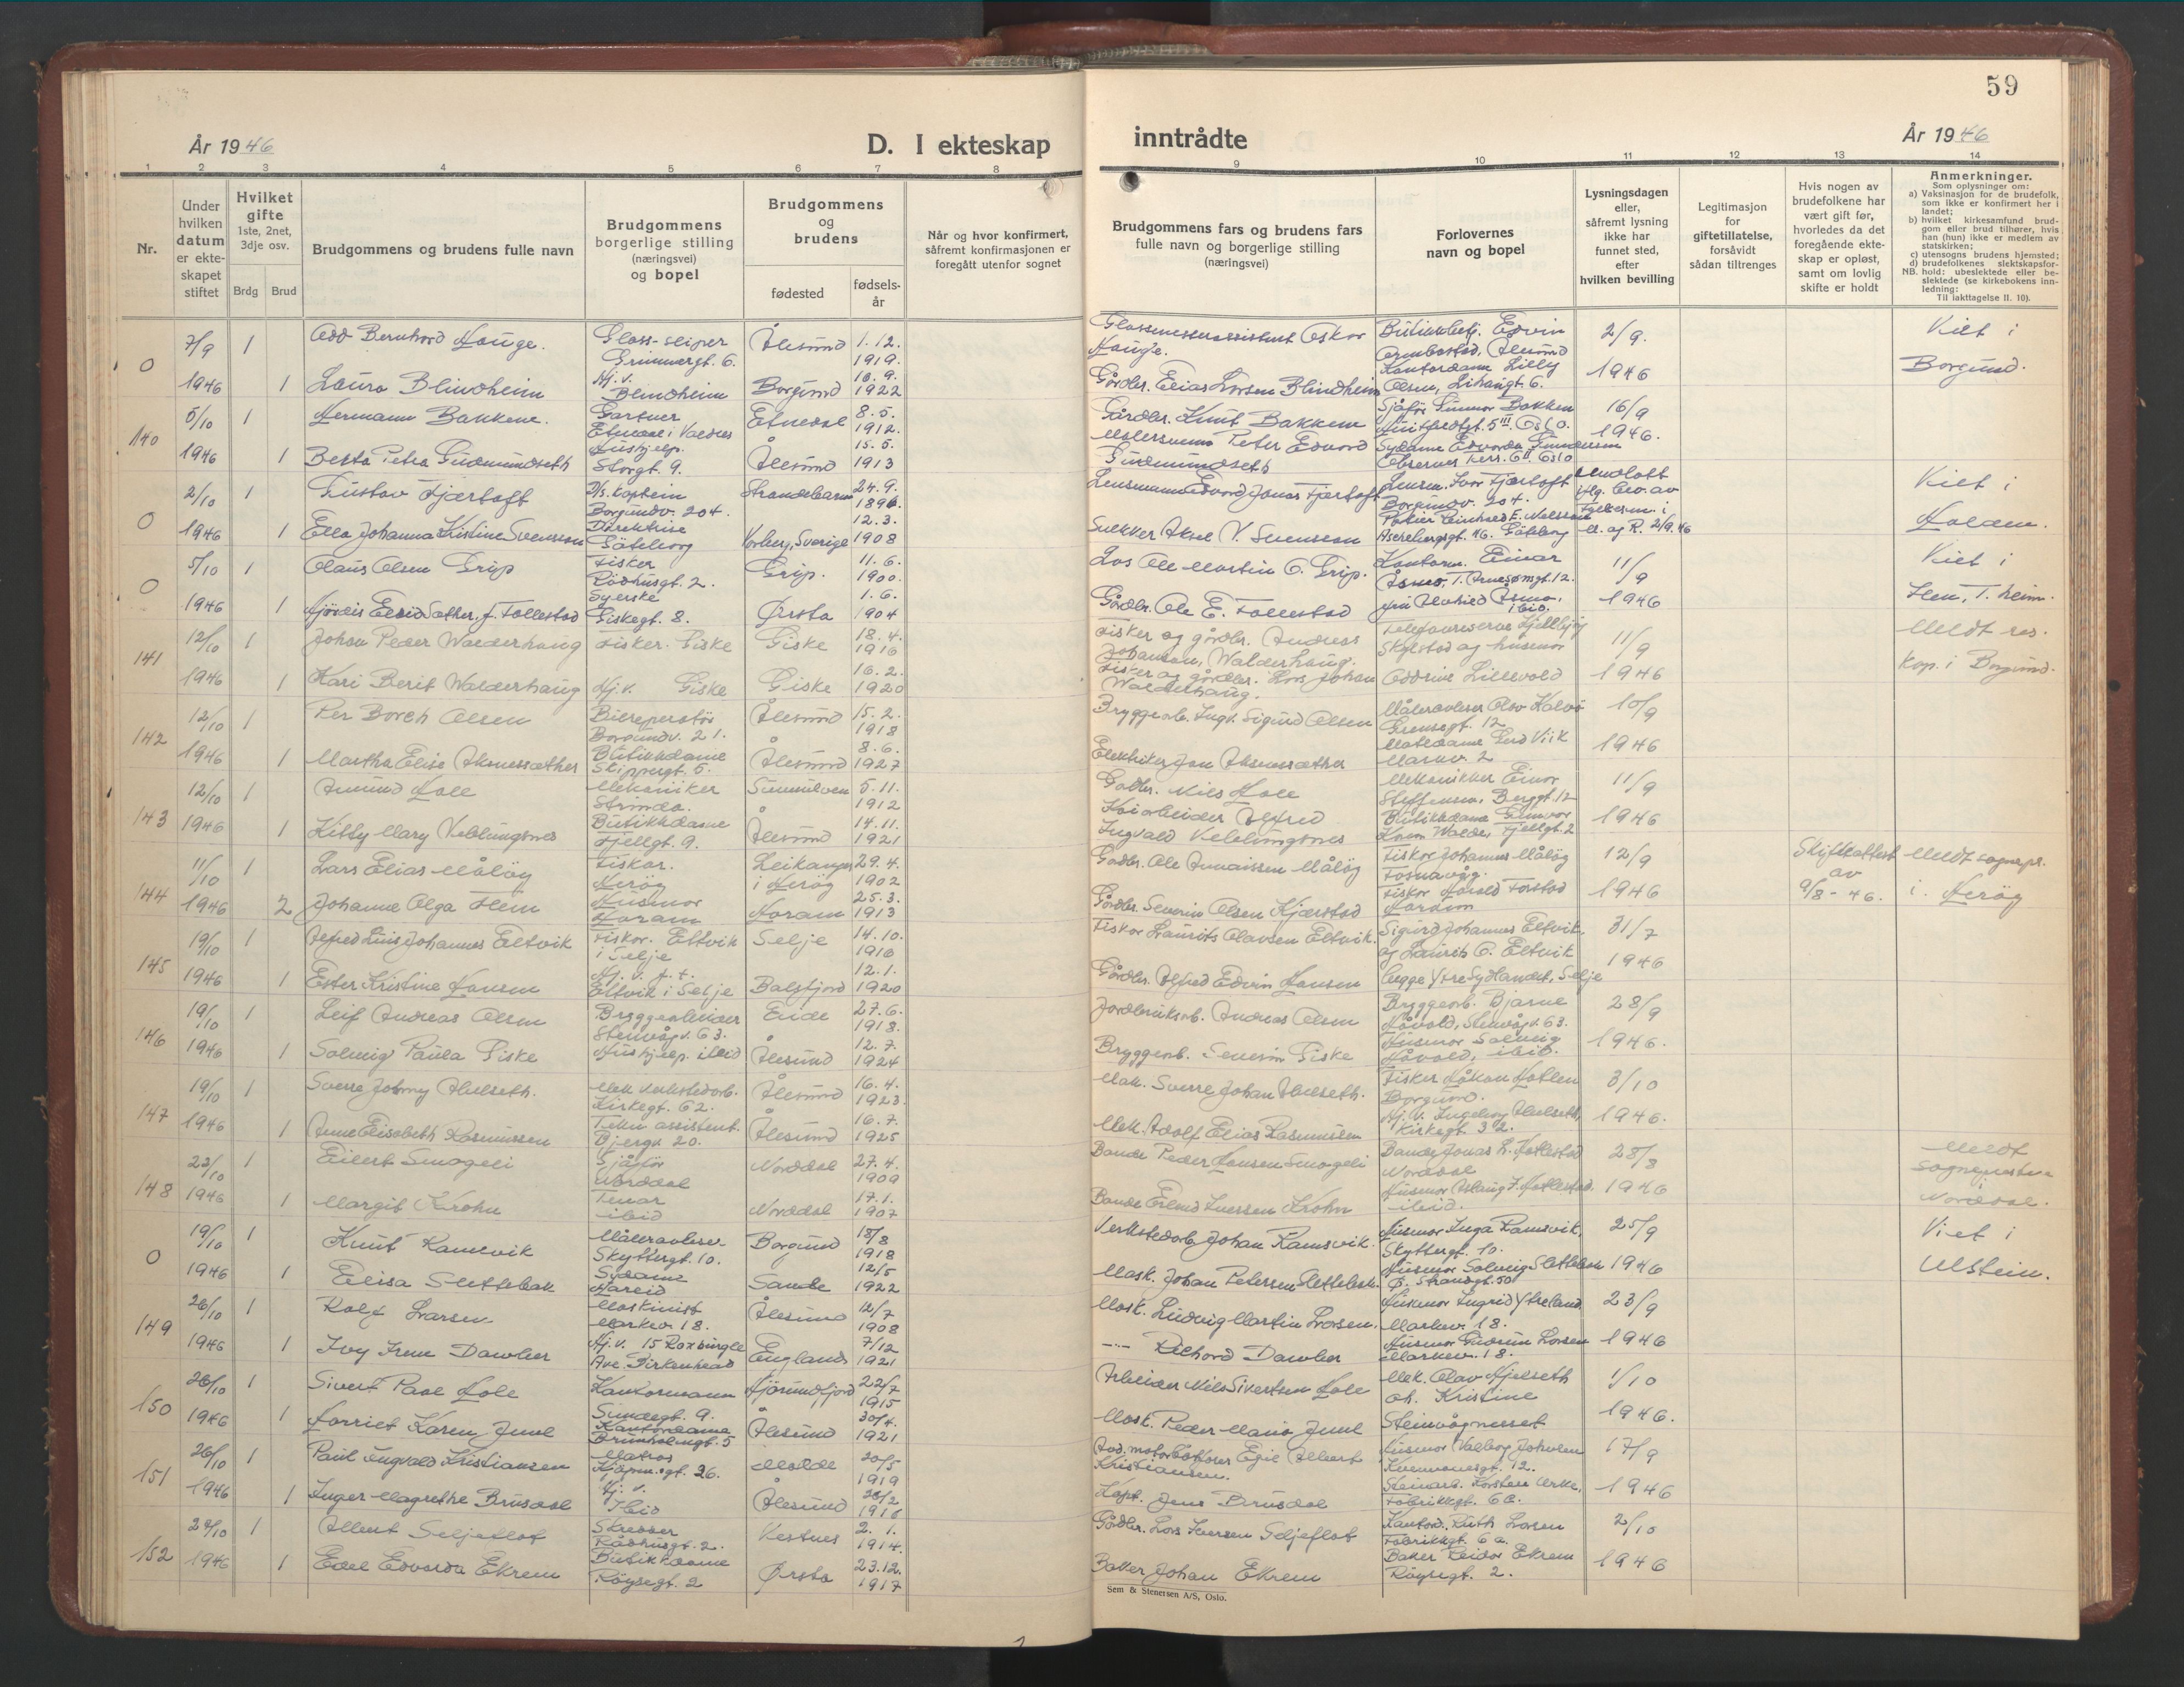 59
År 1946
D. I ekteskap
inntrådte
År 1946
1 2 3 4 5 6 7 8 9 10 11 12 13 14
Nr.
Under
hvilken
datum
er ekte-
skapet
stiftet
Hvilket
gifte
1ste, 2net,
3dje osv.
Brdg Brud
Brudgommens og brudens fulle navn
Brudgommens
borgerlige stilling
(næringsvei)
og bopel
Brudgommens
og
brudens
fødested
fødsels-
år
Når og hvor konfirmert,
såfremt konfirmasjonen er
foregått utenfor sognet
Brudgommens fars og brudens fars
fulle navn og borgerlige stilling
(næringsvei)
Forlovernes
navn og bopel
Lysningsdagen
eller,
såfremt lysning
ikke har
funnet sted,
efter
hvilken bevilling
Legitimasjon
for
giftetillatelse,
forsåvidt
sådan tiltrenges
Hvis nogen av
brudefolkene har
vært gift før,
hvorledes da det
foregående ekte-
skap er opløst,
samt om lovlig
skifte er holdt
Anmerkninger.
Som oplysninger om:
a) Vaksinasjon for de brudefolk,
som ikke er konfirmert her i
landet;
b) hvilket kirkesamfund brud-
gom eller brud tilhører, hvis
han (hun) ikke er medlem av
statskirken;
c) utensogns brudens hjemsted;
d) brudefolkenes slektskapsfor-
NB. hold: ubeslektede eller be-
slektede (se kirkebokens inn-
ledning:
Til iakttagelse II. 10).
0 7/9 1 Odd Bernhard Hauge. Glass-sliper Ålesund 1.12. Oskar Butikkbetj. Edvin 2/9. Viet i
Grimmergt. 6. 1919. Hauge. Ålesund
1946 1 Laura Blindheim Hj.v. Blindheim Borgund 10.9. 1922 Gårdbr. Elias Larsen Blindheim Kontordame Lilly Olsen, 1946 Borgund.
140 5/10 1 Hermann Bakkene. Gartner Etnedal 8.5. Gårdbr. Knut Bakken Sjåfør Gunnar Bakken 16/9
Etnedal i Valdres 1912. Oslo. 1946.
1946 1 Berta Petra Gudmundseth Hushjelp. Storgt. 9. Ålesund 15.5. 1913 Peter Edvard Gudmundseth Sydame Edvarda Oslo
0 2/10 1 Gustav Fjærtoft D/s. kaptein Strandebarm 24.9. Lensmann Edvard Jonas Fjærtoft Lensm. Ivar Fjærtoft Viet i
Borgundv. 204. 1896. Borgundv. 204.
1946 1 Ella Johanna Kristine Svensson Direktrise Göteborg Varberg, Sverige 12.3. 1908 Snekker Aksel V. Svensson Göteborg 2/9.46 Halden.
0 5/10 1 Olaus Olsen Grip Fisker Grip. 11.6. Los Ole Martin O. Grip. Kontorm. Einar 11/9 Viet i
Rådhusgt. 2. 1900.
1946 1 Hjördis Ellid Sæther, f. Follestad Syerske Giskegt. 8. Ørsta 1.6. 1904 Gårdbr. Ole E. Follestad ibid. 1946 T.heim.
141 12/10 1 Johan Peder Walderhaug Fisker. Giske Giske 18.4. 1916 Fisker og gårdbr. Andreas Johansen, Walderhaug. Skjelstad og husmor 11/9 Meldt res.
1946 1 Kari Berit Walderhaug Hj.v. Giske Giske 16.2. 1920 Fisker og gårdbr. Lars Johan Walderhaug. Oddrun Lillevold 1946 kap. i Borgund.
142 12/10 1 Per Borch Olsen Bilreparatør Ålesund 15.2. Bryggearb. Ingv. Sigurd Olsen Måleravleser Olav Kalvø 10/9
Borgundv. 21. 1918 Grensegt. 12
1946 1 Martha Elise Aknessæther Butikkdame Skippergt. 5. Ålesund 8.6. 1927 Elektriker Jon Aknessæther Gerd Viik Markv. 2 1946
143 12/10 1 Amund Hole Mekaniker Sunnulven 5.11. Gårdbr. Nils Hole Mekanikker Einar 11/9
Strinda. 1912 Steffensen, Berggt. 12
1946 1 Kitty Mary Veblungsnes Butikkdame Fjellgt. 9. Ålesund 14.11. 1921 Kaiarbeider Alfred Ingvald Veblungsnes Butikkdame Gunvor Walde, Fjellgt. 2 1946
144 11/10 1 Lars Elias Måløy Fisker. Leikanger 29.4. Gårdbr. Ole Måløy Fisker Johannes Måløy 12/9 Skifteattest Meldt sognepr.
Herøy i Herøy 1902 Fosnavåg. av
1946 2 Johanne Olga Flem Husmor Haram Haram 25.3. 1913 Gårdbr. Severin Olsen Kjærstad Fisker Harald Haram 1946 9/8-46. i Herøy
145 19/10 1 Alfred Linis Johannes Eltvik Fisker. Eltvik Selje 14.10. Fisker Laurits Olavsen Eltvik. Sigurd Johannes Eltvik, 31/7
i Selje 1916 og Laurits O. Eltvik
1946 1 Ester Kristine Hansen Hj.v. f.t. Eltvik i Selje Balsfjord 12.1. 1920 Gårdbr. Alfred Edvin Hansen begge Ytre Sydlandet, Selje 1946
146 19/10 1 Leif Andreas Olsen Bryggearbeider Eide 27.6. Jordbruksarb. Andreas Olsen Bryggearb. Bjarne 28/9
Steinvågv. 63. 1918. Håvold, Steinvågv. 63.
1946 1 Solveig Paula Giske Hushjelp. ibid Ålesund 12.7. 1924 Bryggearb. Severin Giske Husmor Solveig Håvold, ibid. 1946.
147 19/10 1 Sverre Johnny Helseth. Mek. verkstedarb. Ålesund 16.4. Mek. Sverre Johan Helseth. Fisker Håkon 3/10
Kirkegt. 62. 1923. Borgund.
1946 1 Anne Elisabeth Rasmussen assistent. Bjergv. 20. Ålesund 16.7. 1925 Mek. Adolf Elias Rasmussen Hj.v. Ingeborg Helseth, Kirkegt. 32. 1946.
148 23/10 1 Eilert Smogeli Sjåfør Norddal 27.4. Bonde Peder Hansen Smogeli Bonde Jonas 28/8 Meldt
Norddal 1909 Norddal
1946 1 Margit Krohn ibid Norddal 17.1. 1907 Bonde Erlend Iversen Krohn Husmor ibid. 1946 i Norddal.
0 19/10 1 Knut Ramsvik Måleravleser Borgund 18/8 Verkstedarb. Johan Ramsvik. Husmor Inga Ramsvik, 25/9 Viet i
Skyttergt. 10. 1918 Skyttergt. 10.
1946 1 Elisa Slettebak Sydame Hareid Sande 12/5 1922 Mask. Johan Petersen Slettebak. Husmor Solveig Slettebak Ø. Strandgt. 50 1946 Ulstein.
149 26/10 1 Rolf Larsen Maskinist Ålesund 12/7 Mask. Ludvig Martin Larsen. Husmor Ingrid Ytreland. 23/9
Markev. 18. 1908 Markev. 18.
1946 1 Ivy Irene Dawber Hj.v. 15 Roxburgle Ave. Birkenhead England 7/12 1921 Richard Dawber Husmor Gudrun Larsen Markev. 18. 1946
150 26/10 1 Sivert Paul Hole Kontormann Hjørundfjord 22/7 Arbeider Nils Sivertsen Hole Mek. Olav Hjelseth 1/10
Sundegt. 9. 1915 oh. Kristine
1946 1 Harriet Karen Juul Kontordame Brunholmgt. 5 Ålesund 30/4. 1921 Mask. Peder Maria Juul Steinvågnesset 1946.
151 26/10 1 Paul Ingvald Kristiansen Matros Molde 20/5 Egil Albert Kristiansen. Husmor Valborg Johnsen 17/9
Kjøpm.sgt. 26. 1919 Kvennaneset. 12.
1946 1 Inger Magrethe Brusdal Hj.v. Ibid Ålesund 26/2 1916 Kapt. Jens Brusdal Fabrikkgt. 6a. 1946
152 27/10 1 Albert Seljeflot Skredder Vestnes 2.1. Gårdbr. Lars Iversen Seljeflot Kontord. Ruth Larsen 2/10
Rådhusgt. 2. 1914. Fabrikkgt. 6a.
1946 1 Edel Edvarda Ekrem Butikkdame Røysegt. 2 Ørsta 23.12. 1917 Baker Johan Ekrem Baker Reidar Ekrem Røysegt. 2. 1946
Sem & Stenersen A/S, Oslo.